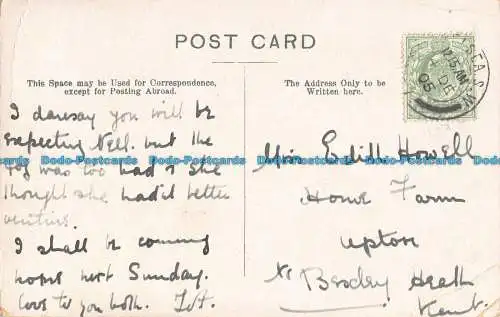 POST CARD
This Space may be Used for Correspondence,
except for Posting Abroad.
The Address Only to be
Written here.
I daresay you will be
expecting Nell. but the
fog was too bad & she
thought she had'd better
venture.
I shall be coming
home next Sunday.
love to you both.
Miss Edith Howell
Home Farm
Upton
Nr Bexley Heath
Kent.
DE
05
Dodo-Postcards Dodo-Postcards Dodo-Postcards Dodo-Postcards
Dodo-Postcards Dodo-Postcards Dodo-Postcards Dodo-Postcards